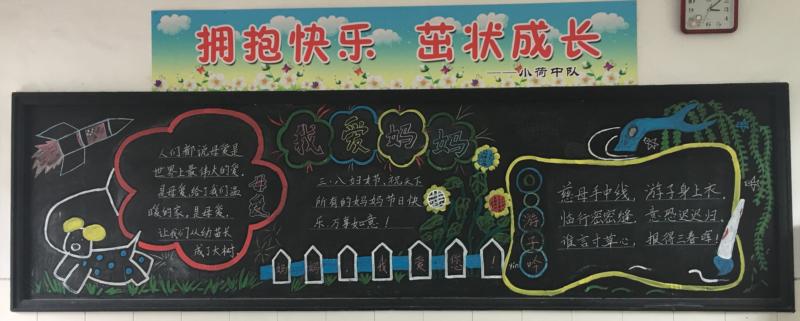 拥抱快乐 茁状成长
——小荷中队
我爱妈妈
人们都说母爱是
世界上最伟大的爱,
是母爱给了我们温
暖的家,是母爱,
让我们从幼苗长
成了大树
母爱
三·八妇女节,祝天下
所有的妈妈节日快
乐万事如意!
妈妈,我爱您!
游子吟
yín
慈母手中线, 游子身上衣.
临行密密缝, 意恐迟迟归.
谁言寸草心, 报得三春晖!